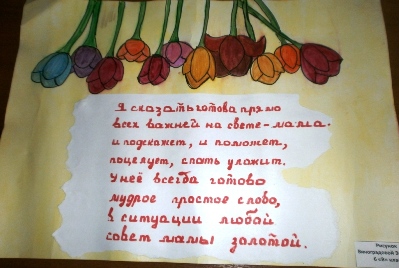 Я сказать готова прямо
всех важней на свете-мама.
и подскажет, и поможет,
поцелует, спать уложит.
У неё всегда готово
мудрое простое слово,
в ситуации любой
совет мамы золотой.
Рисунок